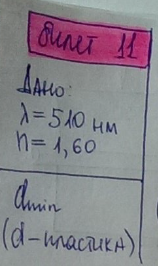 Билет 11
Дано:
λ = 510 нм
n = 1,60
dmin
(d-пластика)